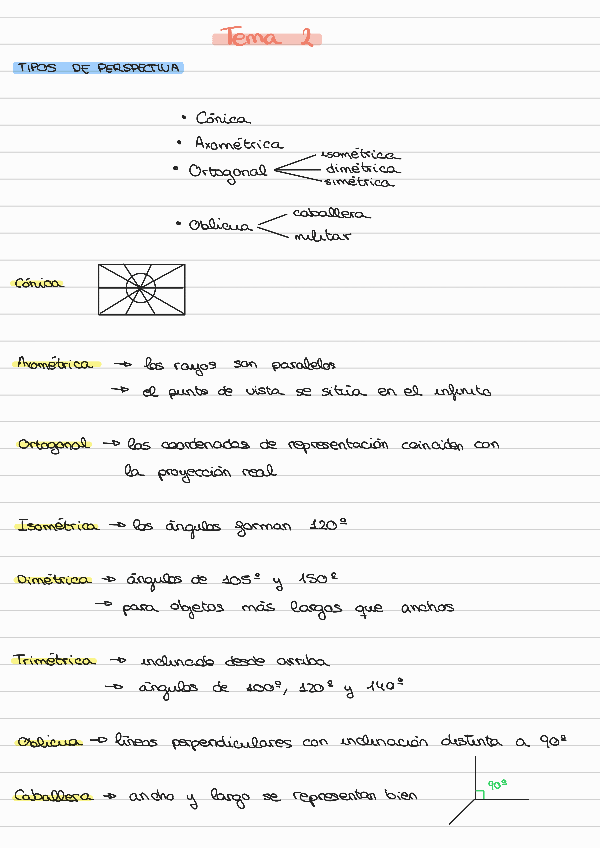 Tema 2
TIPOS DE PERSPECTIVA
• Cónica
• Axométrica
• Ortogonal
isométrica
dimétrica
simétrica
• Oblicua
caballera
militar
Cónica
Axométrica → los rayos son paralelos
→ el punto de vista se sitúa en el infinito
Ortogonal → las coordenadas de representación coinciden con
la proyección real
Isométrica → los ángulos forman 120º
Dimétrica → ángulos de 105º y 150º
→ para objetos más largos que anchos
Trimétrica → inclinado desde arriba
→ ángulos de 100º, 120º y 140º
Oblicua → líneas perpendiculares con inclinación distinta a 90º
90º
Caballera → ancho y largo se representan bien